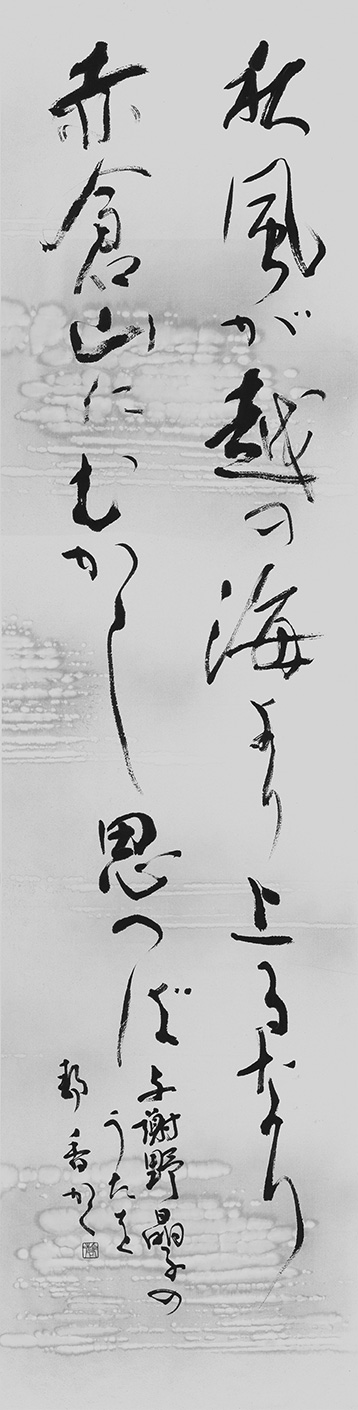 秋風が越の海より上るなり
赤倉山にむかし思へば
与謝野晶子の
うたを
香かく